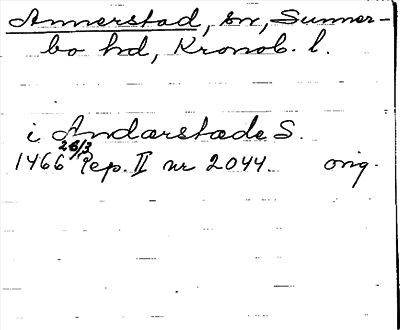 Annerstad, sn, Sunner-
bo hd, Kronob. l.
i Andarstade S.
1466 26/3 Rep. II nr 2044. orig.